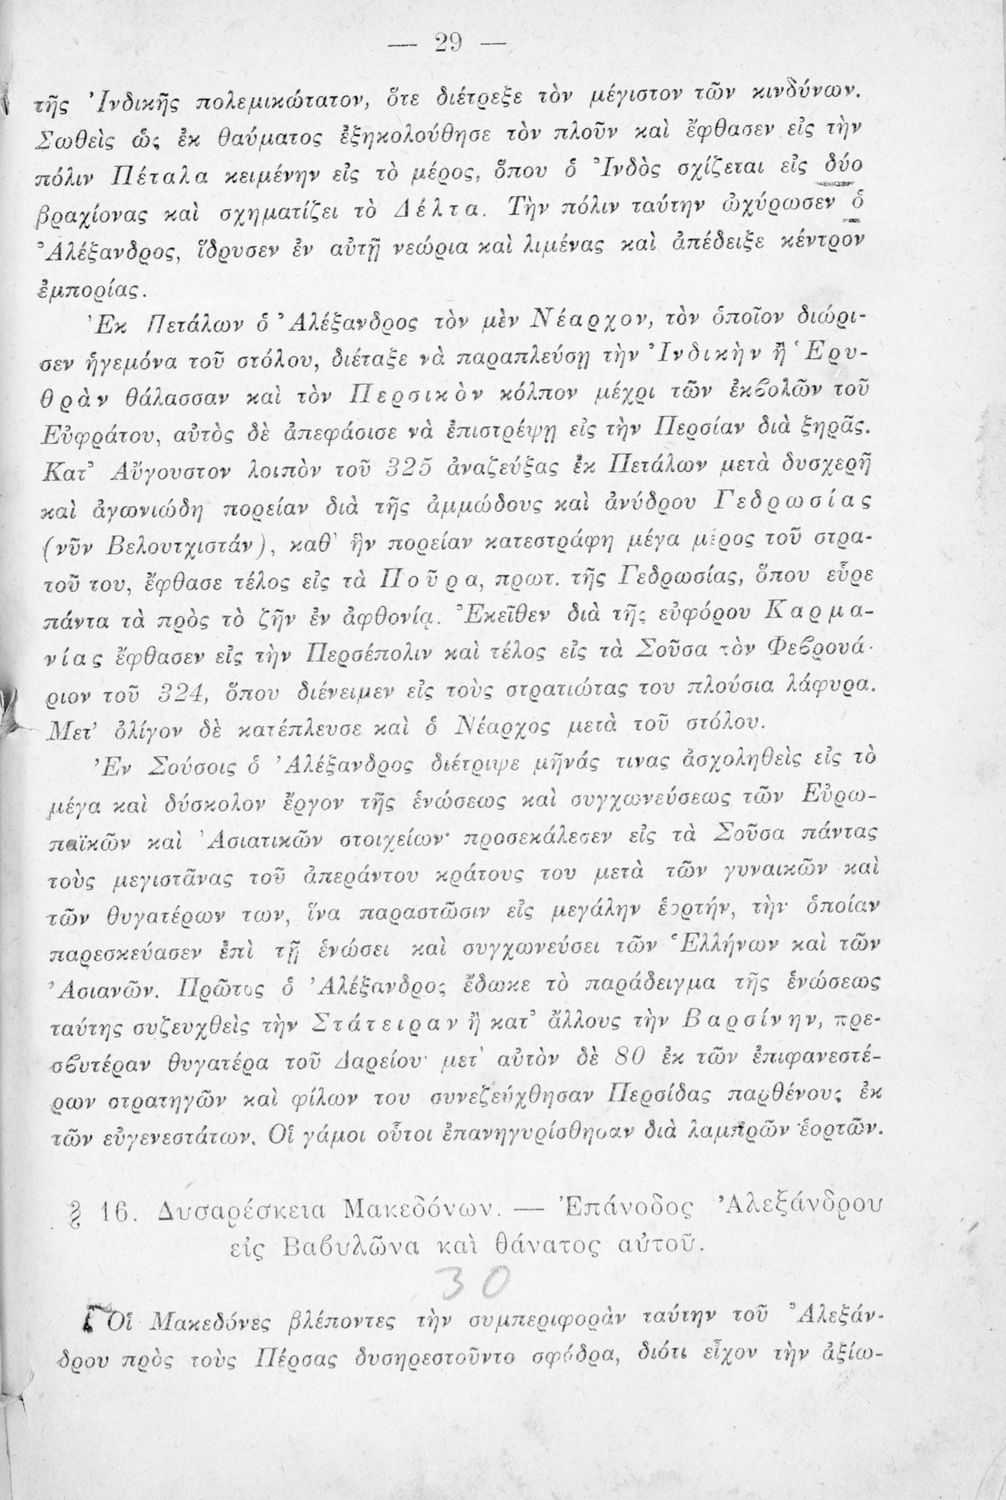 — 29 —
τῆς Ἰνδικῆς πολεμικώτατον, ὅτε διέτρεξε τὸν μέγιστον τῶν κινδύνων.
Σωθεὶς ὡς ἐκ θαύματος ἐξηκολούθησε τὸν πλοῦν καὶ ἔφθασεν εἰς τὴν
πόλιν Πέταλα κειμένην εἰς τὸ μέρος, ὅπου ὁ Ἰνδὸς σχίζεται εἰς δύο
βραχίονας καὶ σχηματίζει τὸ Δέλτα. Τὴν πόλιν ταύτην ὠχύρωσεν ὁ
Ἀλέξανδρος, ἵδρυσεν ἐν αὐτῇ νεώρια καὶ λιμένας καὶ ἀπέδειξε κέντρον
ἐμπορίας.
Ἐκ Πετάλων ὁ Ἀλέξανδρος τὸν μὲν Νέαρχον, τὸν ὁποῖον διώρι-
σεν ἡγεμόνα τοῦ στόλου, διέταξε νὰ παραπλεύσῃ τὴν Ἰνδικὴν ἢ Ἐρυ-
θρὰν θάλασσαν καὶ τὸν Περσικὸν κόλπον μέχρι τῶν ἐκβολῶν τοῦ
Εὐφράτου, αὐτὸς δὲ ἀπεφάσισε νὰ ἐπιστρέψῃ εἰς τὴν Περσίαν διὰ ξηρᾶς.
Κατ' Αὔγουστον λοιπὸν τοῦ 325 ἀναζεύξας ἐκ Πετάλων μετὰ δυσχερῆ
καὶ ἀγωνιώδη πορείαν διὰ τῆς ἀμμώδους καὶ ἀνύδρου Γεδρωσίας
(νῦν Βελουτχιστάν), καθ' ἣν πορείαν κατεστράφη μέγα μέρος τοῦ στρα-
τοῦ του, ἔφθασε τέλος εἰς τὰ Ποῦρα, πρωτ. τῆς Γεδρωσίας, ὅπου εὗρε
πάντα τὰ πρὸς τὸ ζῆν ἐν ἀφθονίᾳ. Ἐκεῖθεν διὰ τῆς εὐφόρου Καρμα-
νίας ἔφθασεν εἰς τὴν Περσέπολιν καὶ τέλος εἰς τὰ Σοῦσα τὸν Φεβρουά-
ριον τοῦ 324, ὅπου διένειμεν εἰς τοὺς στρατιώτας του πλούσια λάφυρα.
Μετ' ὀλίγον δὲ κατέπλευσε καὶ ὁ Νέαρχος μετὰ τοῦ στόλου.
Ἐν Σούσοις ὁ Ἀλέξανδρος διέτριψε μῆνάς τινας ἀσχοληθεὶς εἰς τὸ
μέγα καὶ δύσκολον ἔργον τῆς ἑνώσεως καὶ συγχωνεύσεως τῶν Εὐρω-
παϊκῶν καὶ Ἀσιατικῶν στοιχείων· προσεκάλεσεν εἰς τὰ Σοῦσα πάντας
τοὺς μεγιστᾶνας τοῦ ἀπεράντου κράτους του μετὰ τῶν γυναικῶν καὶ
τῶν θυγατέρων των, ἵνα παραστῶσιν εἰς μεγάλην ἑορτήν, τὴν ὁποίαν
παρεσκεύασεν ἐπὶ τῇ ἑνώσει καὶ συγχωνεύσει τῶν Ἑλλήνων καὶ τῶν
Ἀσιανῶν. Πρῶτος ὁ Ἀλέξανδρος ἔδωκε τὸ παράδειγμα τῆς ἑνώσεως
ταύτης συζευχθεὶς τὴν Στάτειραν ἢ κατ' ἄλλους τὴν Βαρσίνην, πρε-
σβυτέραν θυγατέρα τοῦ Δαρείου· μετ' αὐτὸν δὲ 80 ἐκ τῶν ἐπιφανεστέ-
ρων στρατηγῶν καὶ φίλων του συνεζεύχθησαν Περσίδας παρθένους ἐκ
τῶν εὐγενεστάτων. Οἱ γάμοι οὗτοι ἐπανηγυρίσθησαν διὰ λαμπρῶν ἑορτῶν.
§ 16. Δυσαρέσκεια Μακεδόνων. — Ἐπάνοδος Ἀλεξάνδρου
εἰς Βαβυλῶνα καὶ θάνατος αὐτοῦ.
30
Οἱ Μακεδόνες βλέποντες τὴν συμπεριφορὰν ταύτην τοῦ Ἀλεξάν-
δρου πρὸς τοὺς Πέρσας δυσηρεστοῦντο σφόδρα, διότι εἶχον τὴν ἀξίω-